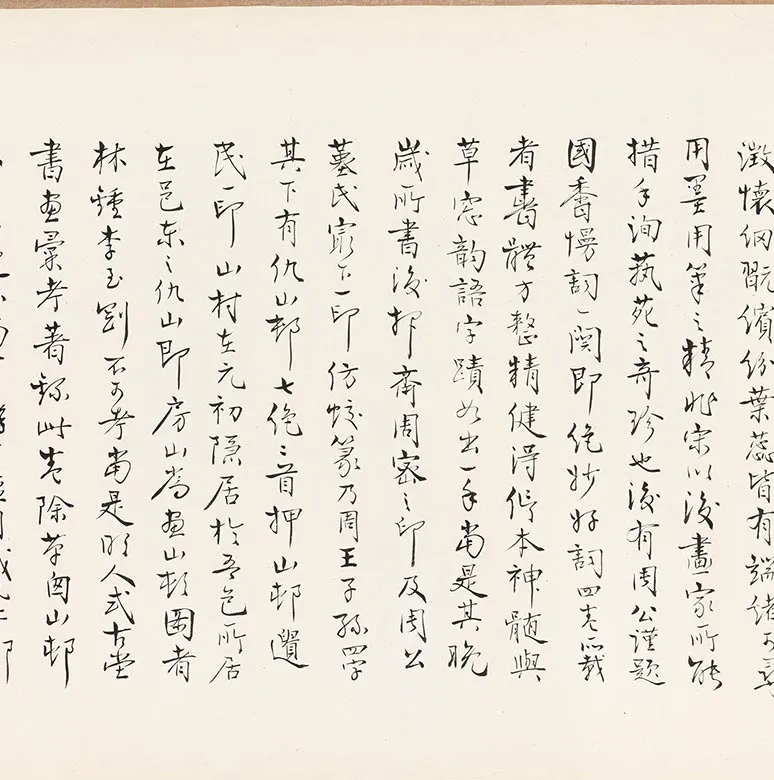 澂懷細翫繽紛葉蕊皆有端緒可尋
用墨用筆之精非宋以後畫家所能
措手洵蓺苑之奇珍也後有周公謹題
國香慢詞一闋即絕妙好詞四卷所載
者書體方整精健得脩本神髓與
草窓韵語字蹟如出一手當是其晚
歲所書後押齋周密之印及周公
氏最下一印仿蛟篆乃周王子孫四字
其下有仇山邨七絕二首押山邨遺
民一印山村在元初隱居於吾邑所居
在邑東之仇山即房山為畫山邨圖者
林鍾李玉剛不可考當是明人式古堂
書畫彙考著錄此卷除草囱山邨